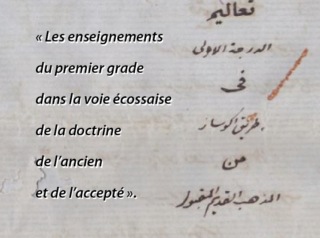 « Les enseignements
du premier grade
dans la voie écossaise
de la doctrine
de l’ancien
et de l’accepté ».
تعاليم
الدرجة الاولى
فى
من
المذهب القديم المقبول